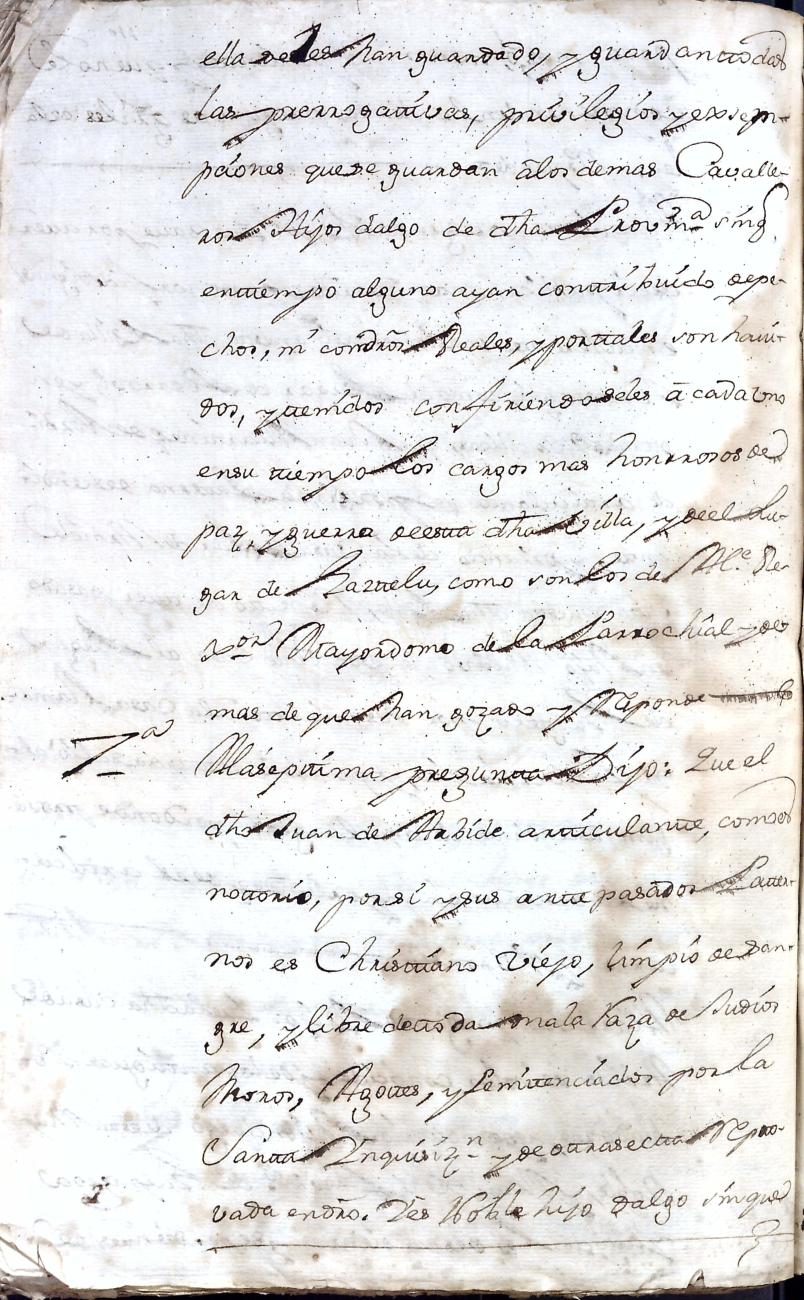 ella se les han guardado, y guardan ttodas
las prerrogattivas, privilegios y exsemp-
pciones que se guardan â los demas Cavalle-
ros Hijos dalgo de dha Provinᵃ sin q̃
en ttiempo alguno ayan conttribuido de pe-
chos, ni con dros Reales, y por ttales son havi-
dos, y ttenidos confiriendoseles â cada uno
en su ttiempo los cargos mas honrrosos de
paz, y guerra de estta dha Villa, y de el Lu-
gar de Lazttelu, como son los de Alᵉ Re-
xᵒʳ Mayordomo de la Parrochial y de
mas de que han gozado y Responde
7ᵃ
A la sepittima preguntta Dijo: Que el
dho Juan de Arbide artticulantte, como es
nottorio, por si y sus antte pasados Patter-
nos es Christtiano Viejo, limpio de san-
gre, y libre de ttoda mala Raza de Judios
Moros, Agottes, y Penittenciados por la
Santta Inquisizⁿ y de ottra sectta Repro-
vada en dro. Y es Noble hijo dalgo sin que